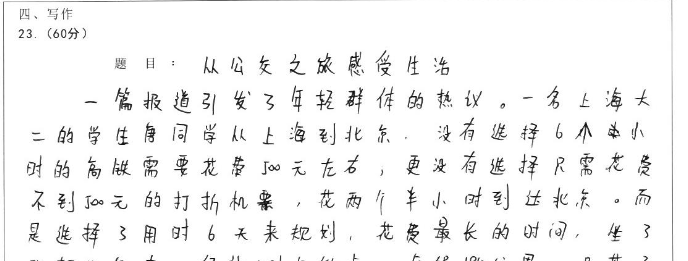 四、写作
23.（60分）
题 目： 从公交之旅感受生活
一篇报道引发了年轻群体的热议。一名上海大
二的学生唐同学从上海到北京，没有选择6个半小
时的高铁需要花费500元左右，更没有选择只需花费
不到500元的打折机票，花两个半小时到达北京。而
是选择了用时6天来规划，花费最长的时间，坐了